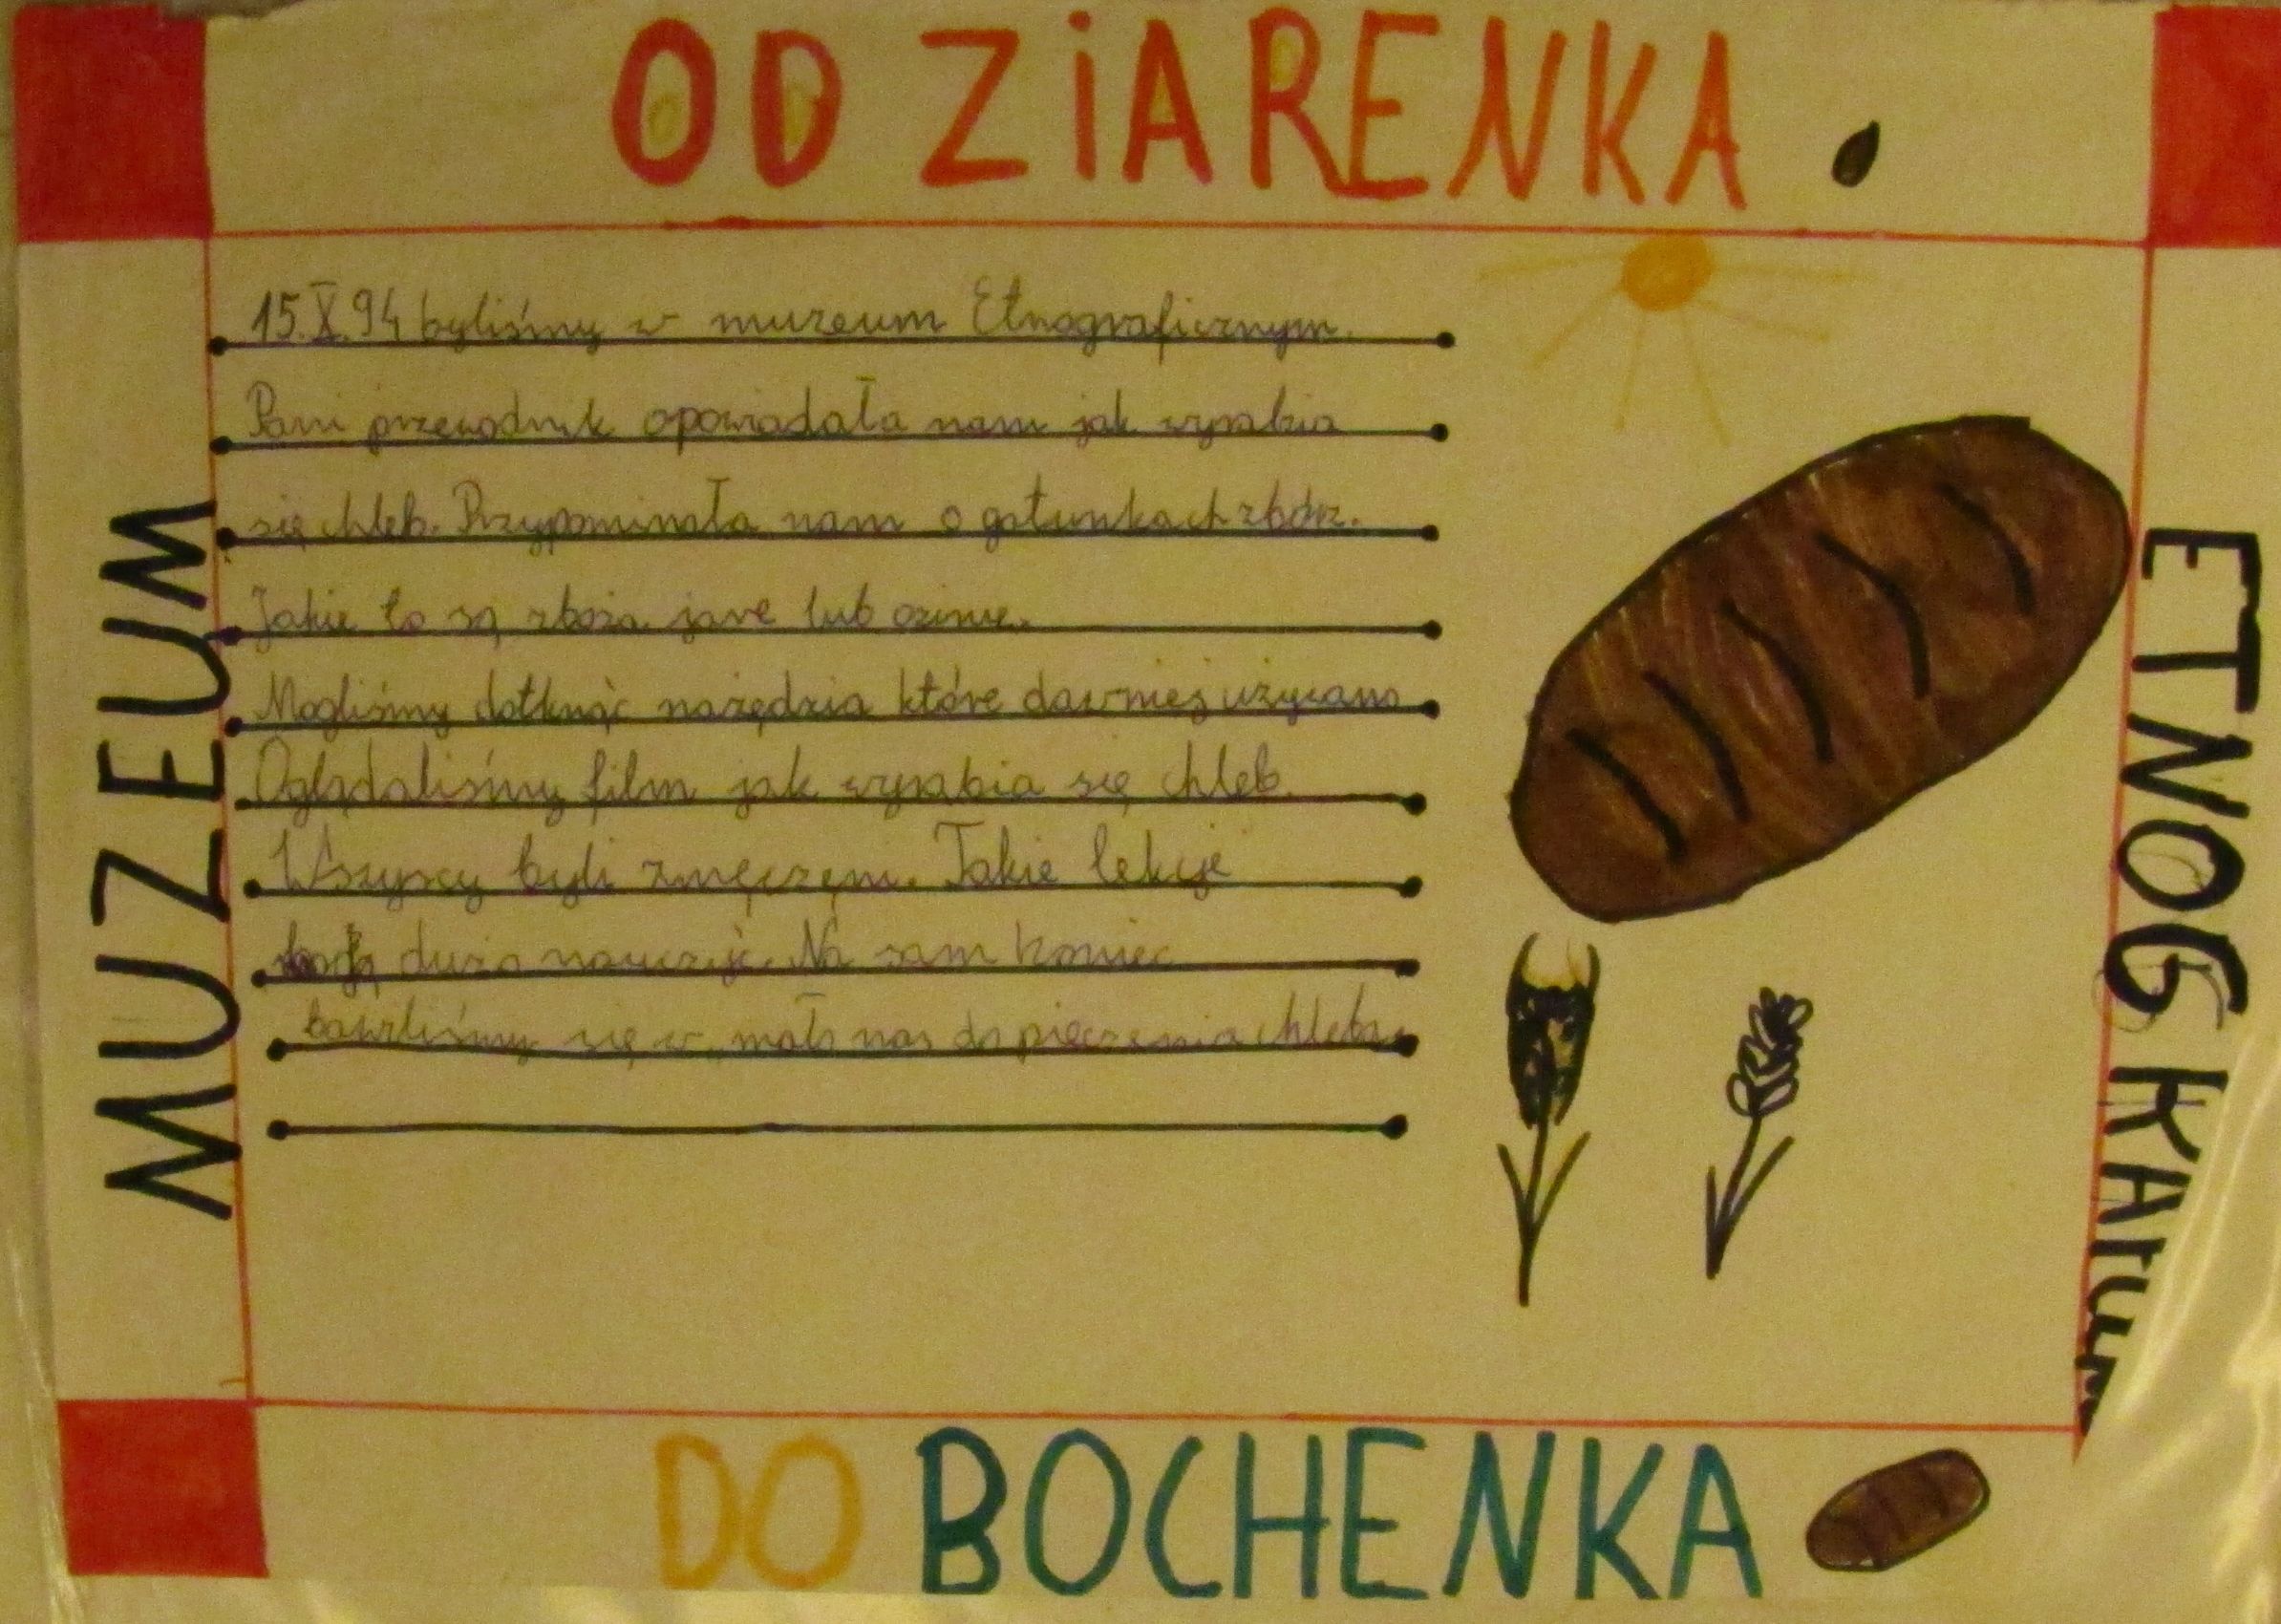 OD ZIARENKA
MUZEUM
15.X.94 byliśmy w muzeum Etnograficznym.
Pani przewodnik opowiadała nam jak wyrabia
się chleb. Przypominała nam o gatunkach zbóż.
Jakie to są zboża jare lub ozime.
Mogliśmy dotknąć narzędzia które dawniej używano
Oglądaliśmy film jak wyrabia się chleb.
Wszyscy byli zmęczęni. Takie lekcje
dużo nauczyć. Na sam koniec
bawiliśmy się w do pieczenia chleba.
ETNOG
DO BOCHENKA